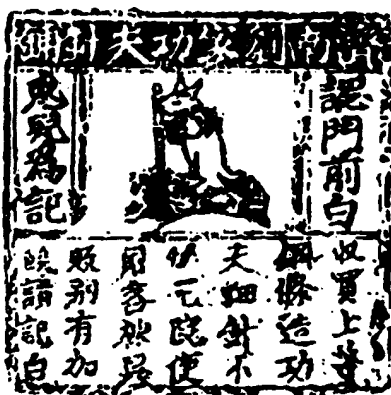 濟南劉家功夫針鋪
認門前白
兔兒為記
收買上等
鋼條造功
夫細針不
宅院使
用
别有加
饒請記白